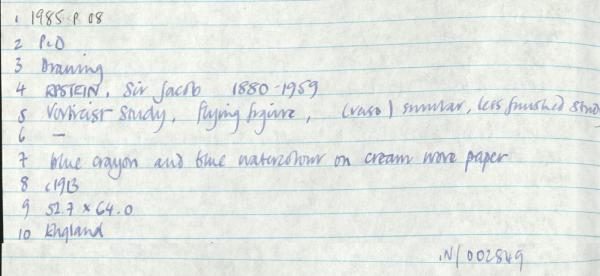 1 1985.P.08
2 P&D
3 Drawing
4 EPSTEIN, Sir Jacob 1880-1959
5 Vorticist Study, flying figure, (verso) similar, less finished study
6 —
7 blue crayon and blue watercolour on cream wove paper
8 c1913
9 52.7 x 64.0
10 England
N/002849